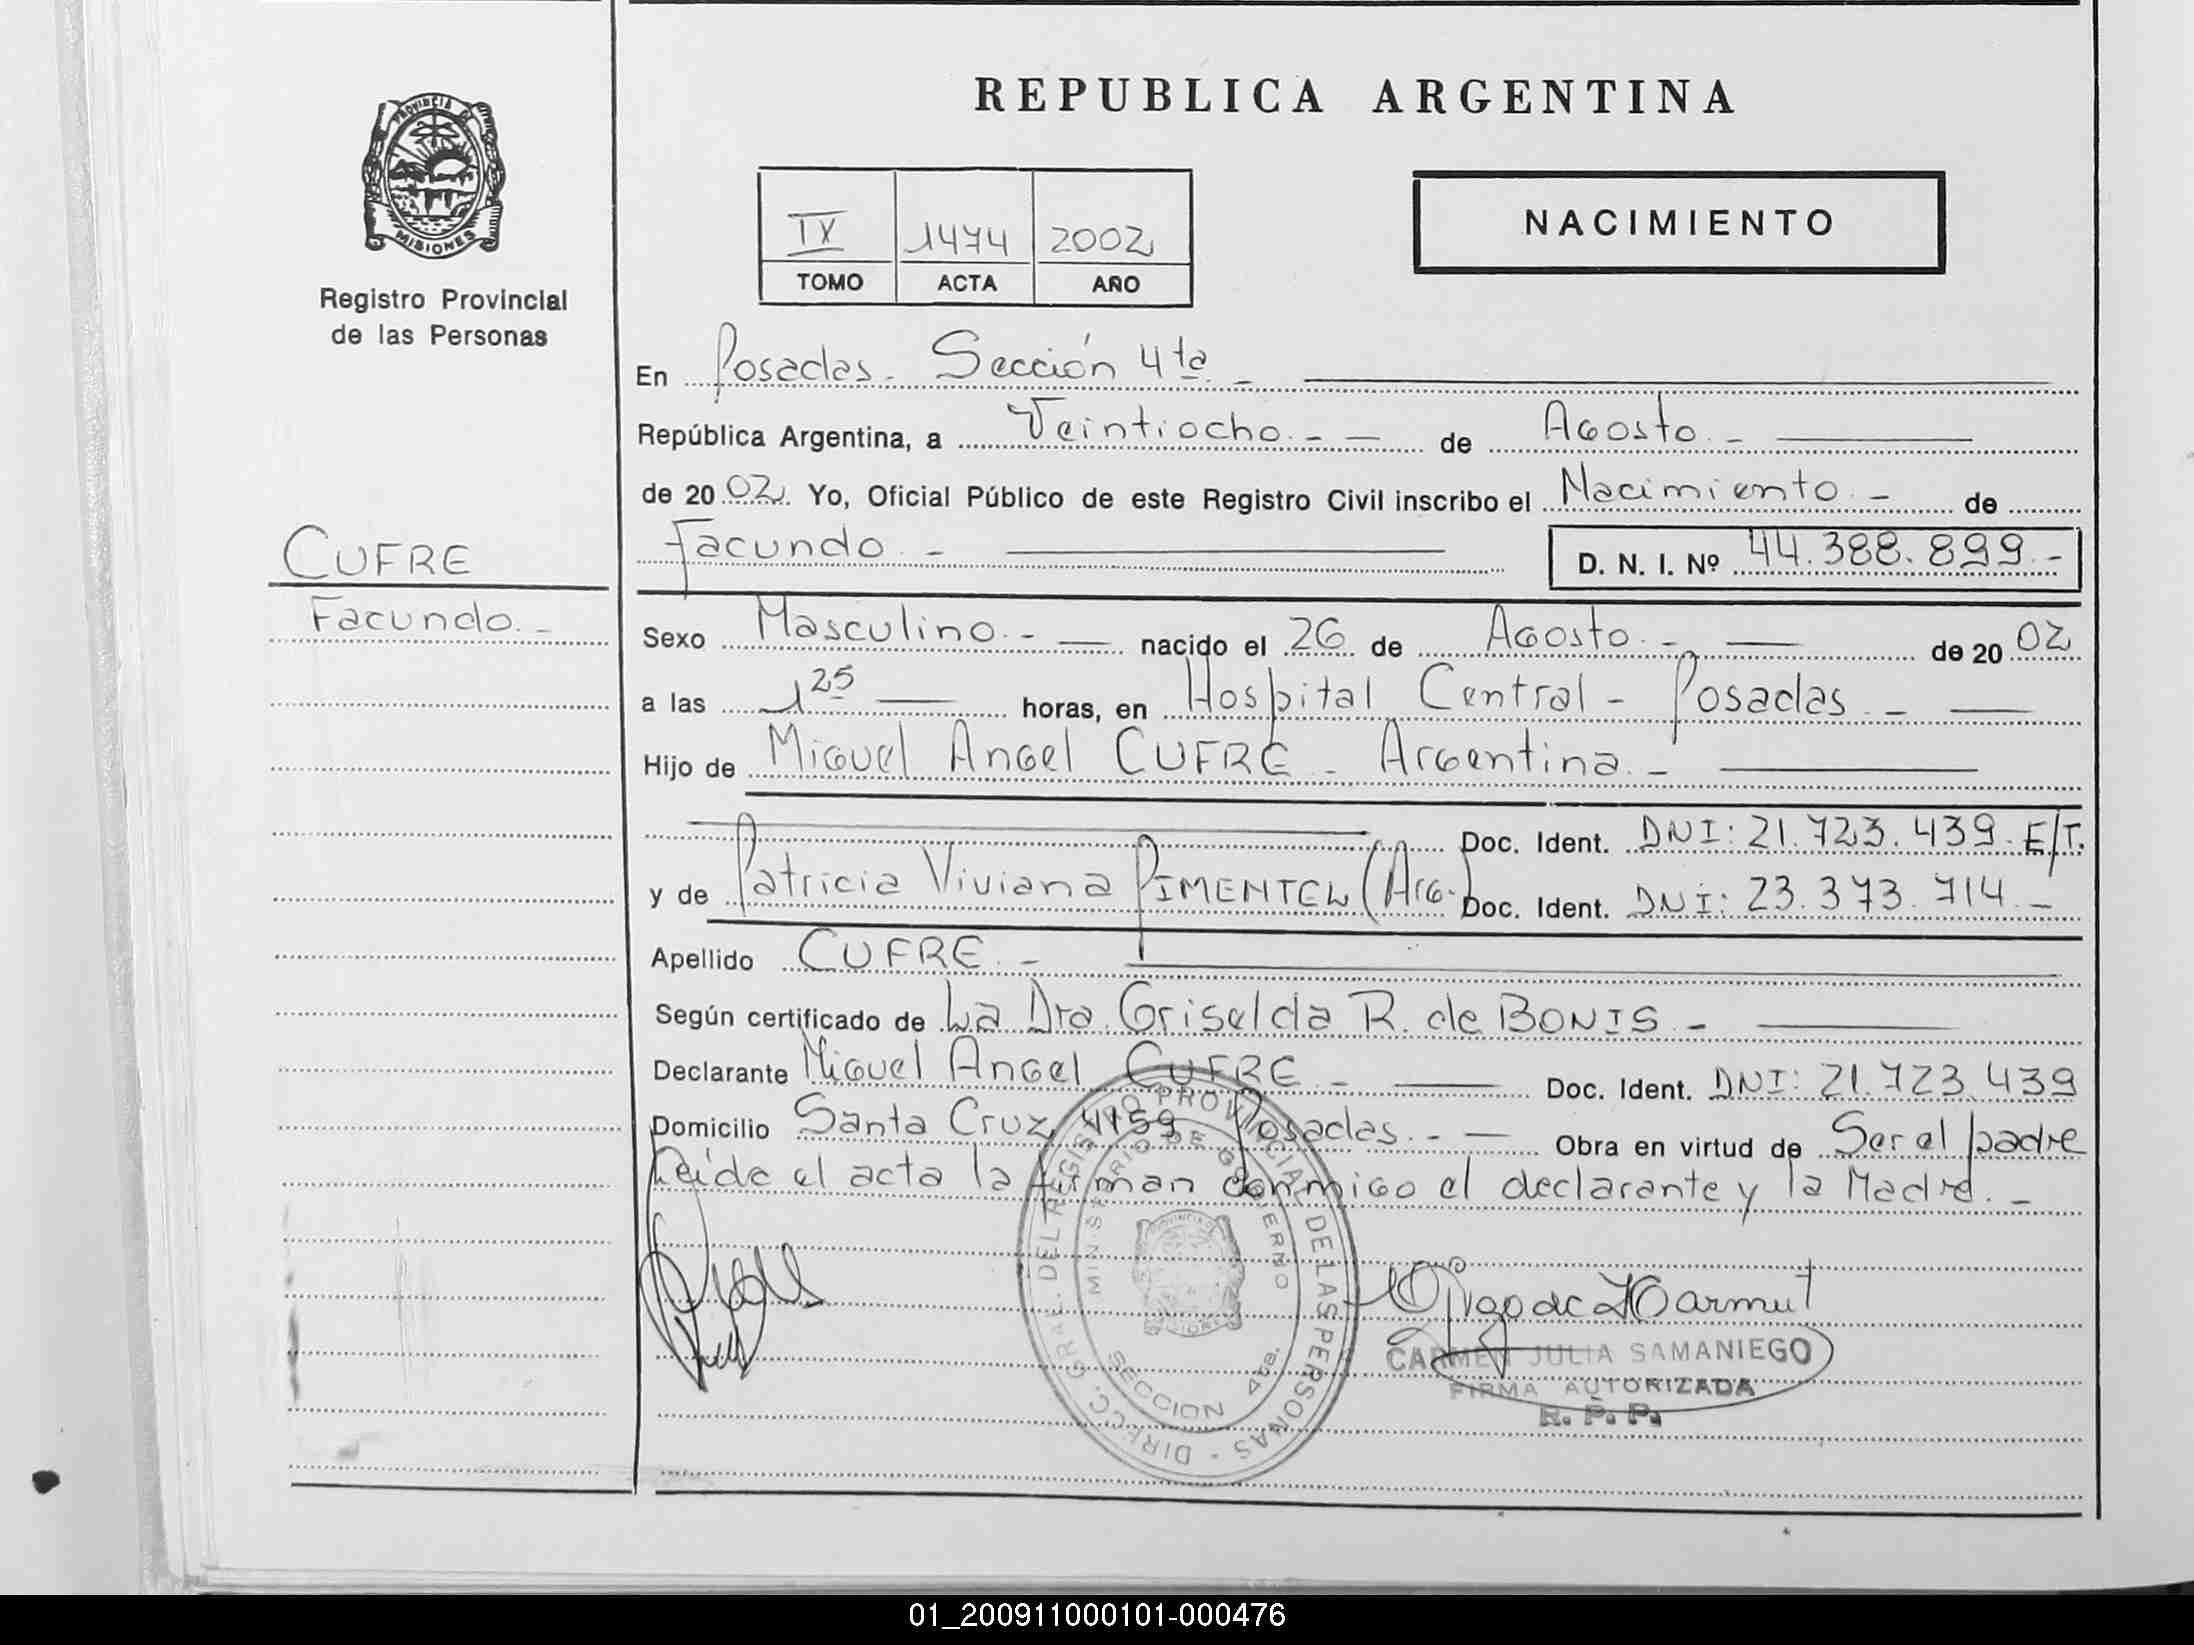 PROVINCIA DE
MISIONES
Registro Provincial
de las Personas
CUFRE
Facundo.-
REPUBLICA ARGENTINA
IX 1474 2002
TOMO ACTA AÑO
NACIMIENTO
En Posadas. Sección 4ta. -
República Argentina, a Veintiocho. - - de Agosto. -
de 2002. Yo, Oficial Público de este Registro Civil inscribo el Nacimiento. - de
Facundo. - D. N. I. Nº 44.388.899.-
Sexo Masculino. - nacido el 26 de Agosto. - de 2002
a las 1 25 horas, en Hospital Central - Posadas. -
Hijo de Miguel Angel CUFRE - Argentina. -
Doc. Ident. DNI: 21.723.439. E/T.
y de Patricia Viviana PIMENTEL (Arg.) Doc. Ident. DNI: 23.373.714. -
Apellido CUFRE. -
Según certificado de La Dra. Griselda R. de BONIS -
Declarante Miguel Angel CUFRE - Doc. Ident. DNI: 21.723.439
Domicilio Santa Cruz 4159 Posadas. - - Obra en virtud de Ser el padre
Leída el acta la firman conmigo el declarante y la Madre. -
DIRECC. GRAL. DEL REGISTRO PROVINCIAL DE LAS PERSONAS -
MINISTERIO DE GOBIERNO
SECCION 4ta.
CARMEN JULIA SAMANIEGO
FIRMA AUTORIZADA
R. P. P.
01_200911000101-000476